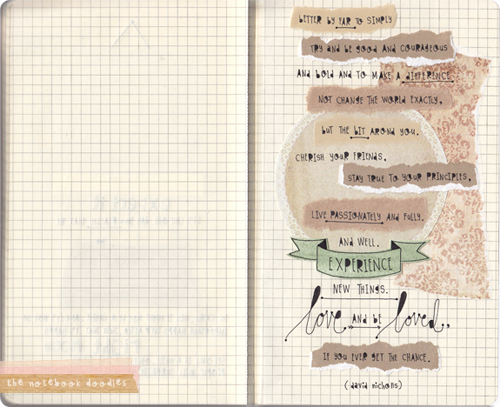 better by far to simply
try and be good and courageous
and bold and to make a difference.
not change the world exactly,
but the bit around you.
cherish your friends,
stay true to your principles,
live passionately and fully,
and well.
EXPERIENCE
new things.
love and be loved,
if you ever get the chance.
(david nichons)
the notebook doodles